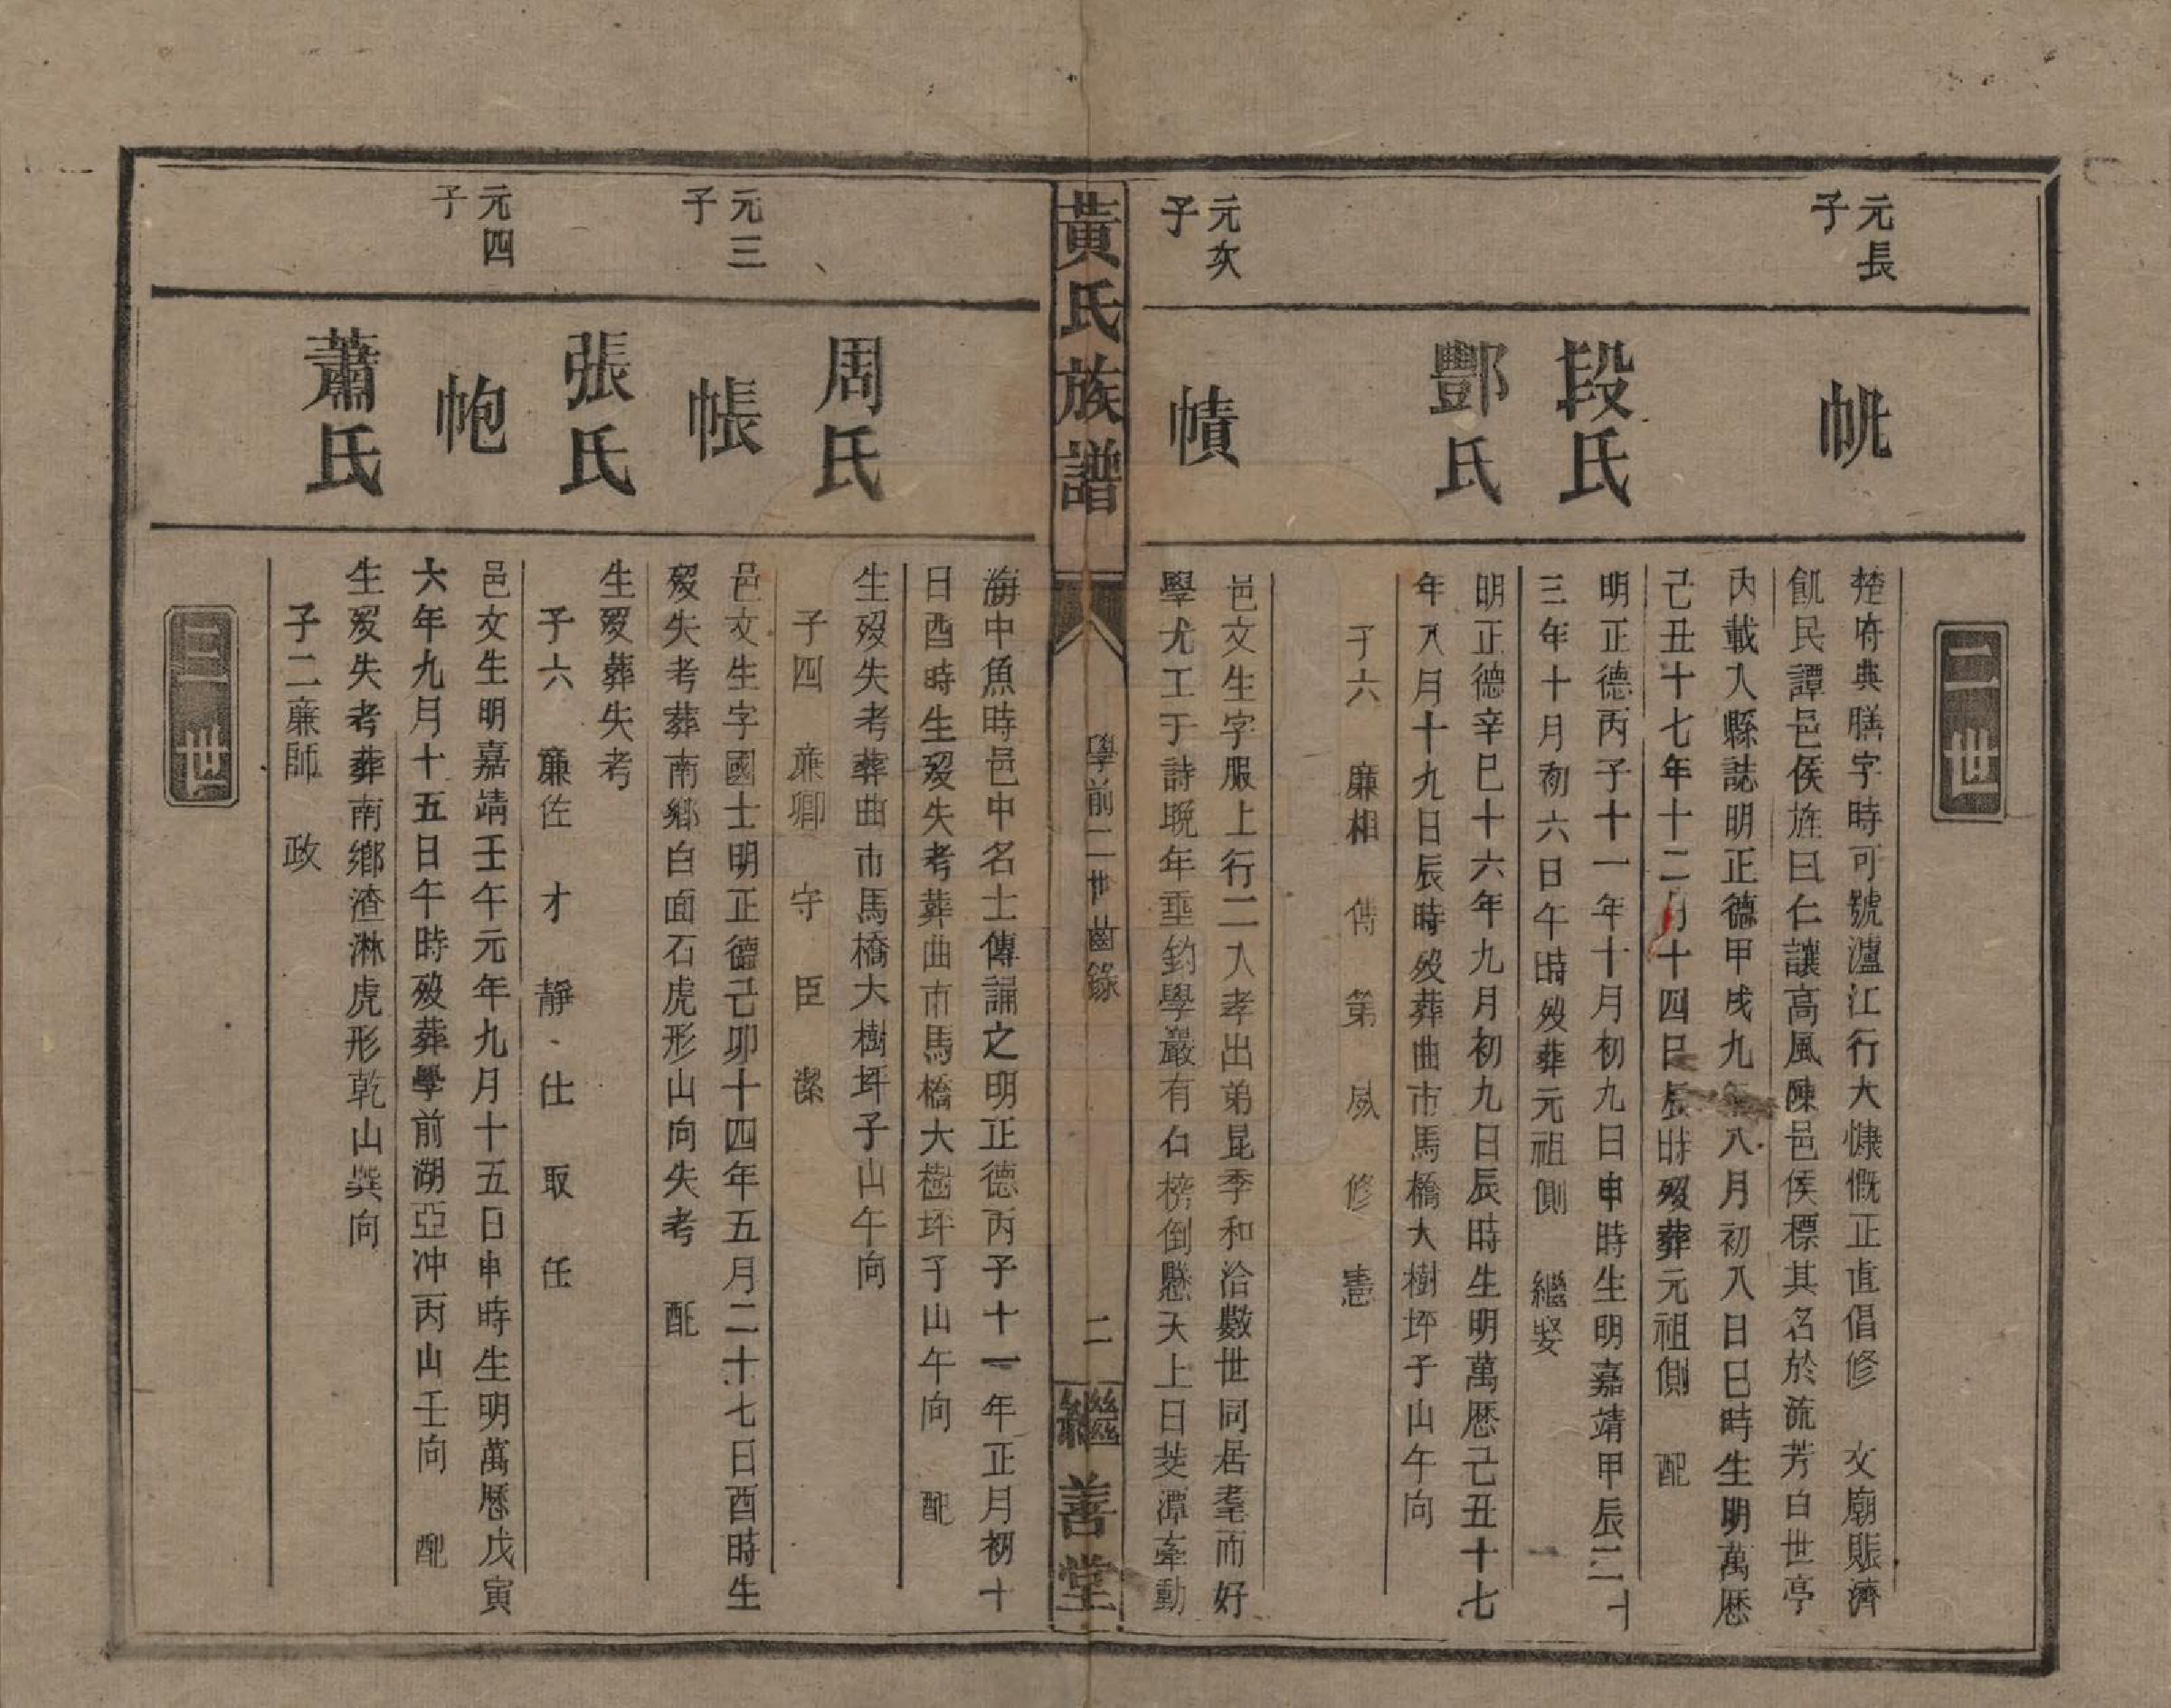 二世
元長子
帨
楚府典膳字時可號瀘江行大慷慨正直倡修　文廟賑濟
飢民譚邑侯旌曰仁讓高風陳邑侯標其名於流芳百世亭
內載入縣誌明正德甲戌九年八月初八日巳時生明萬歷
己丑十七年十二月十四日辰時歿葬元祖側　配
段氏
明正德丙子十一年十月初九日申時生明嘉靖甲辰二十
三年十月初六日午時歿葬元祖側　繼娶
酆氏
明正德辛巳十六年九月初九日辰時生明萬歷己丑十七
年八月十九日辰時歿葬曲市馬橋大樹坪子山午向
子六　廉相　傅　第　威　修　憲
元次子
幘
邑文生字服上行二入孝出弟昆季和洽數世同居耄而好
學尤工于詩晩年垂釣學巖有石榜倒懸天上日芰潭牽動
黃氏族譜
學前二世齒錄
二
繼善堂
海中魚時邑中名士傳誦之明正德丙子十一年正月初十
日酉時生歿失考葬曲市馬橋大樹坪子山午向　配
周氏
生歿失考葬曲市馬橋大樹坪子山午向
子四　廉卿　守　臣　潔
元三子
帳
邑文生字國士明正德己卯十四年五月二十七日酉時生
歿失考葬南鄉白面石虎形山向失考　配
張氏
生歿葬失考
子六　廉佐　才　靜　仕　取　任
元四子
帊
邑文生明嘉靖壬午元年九月十五日申時生明萬歷戊寅
六年九月十五日午時歿葬學前湖亞冲丙山壬向　配
蕭氏
生歿失考葬南鄉渣淋虎形乾山巽向
子二廉師　政
三世